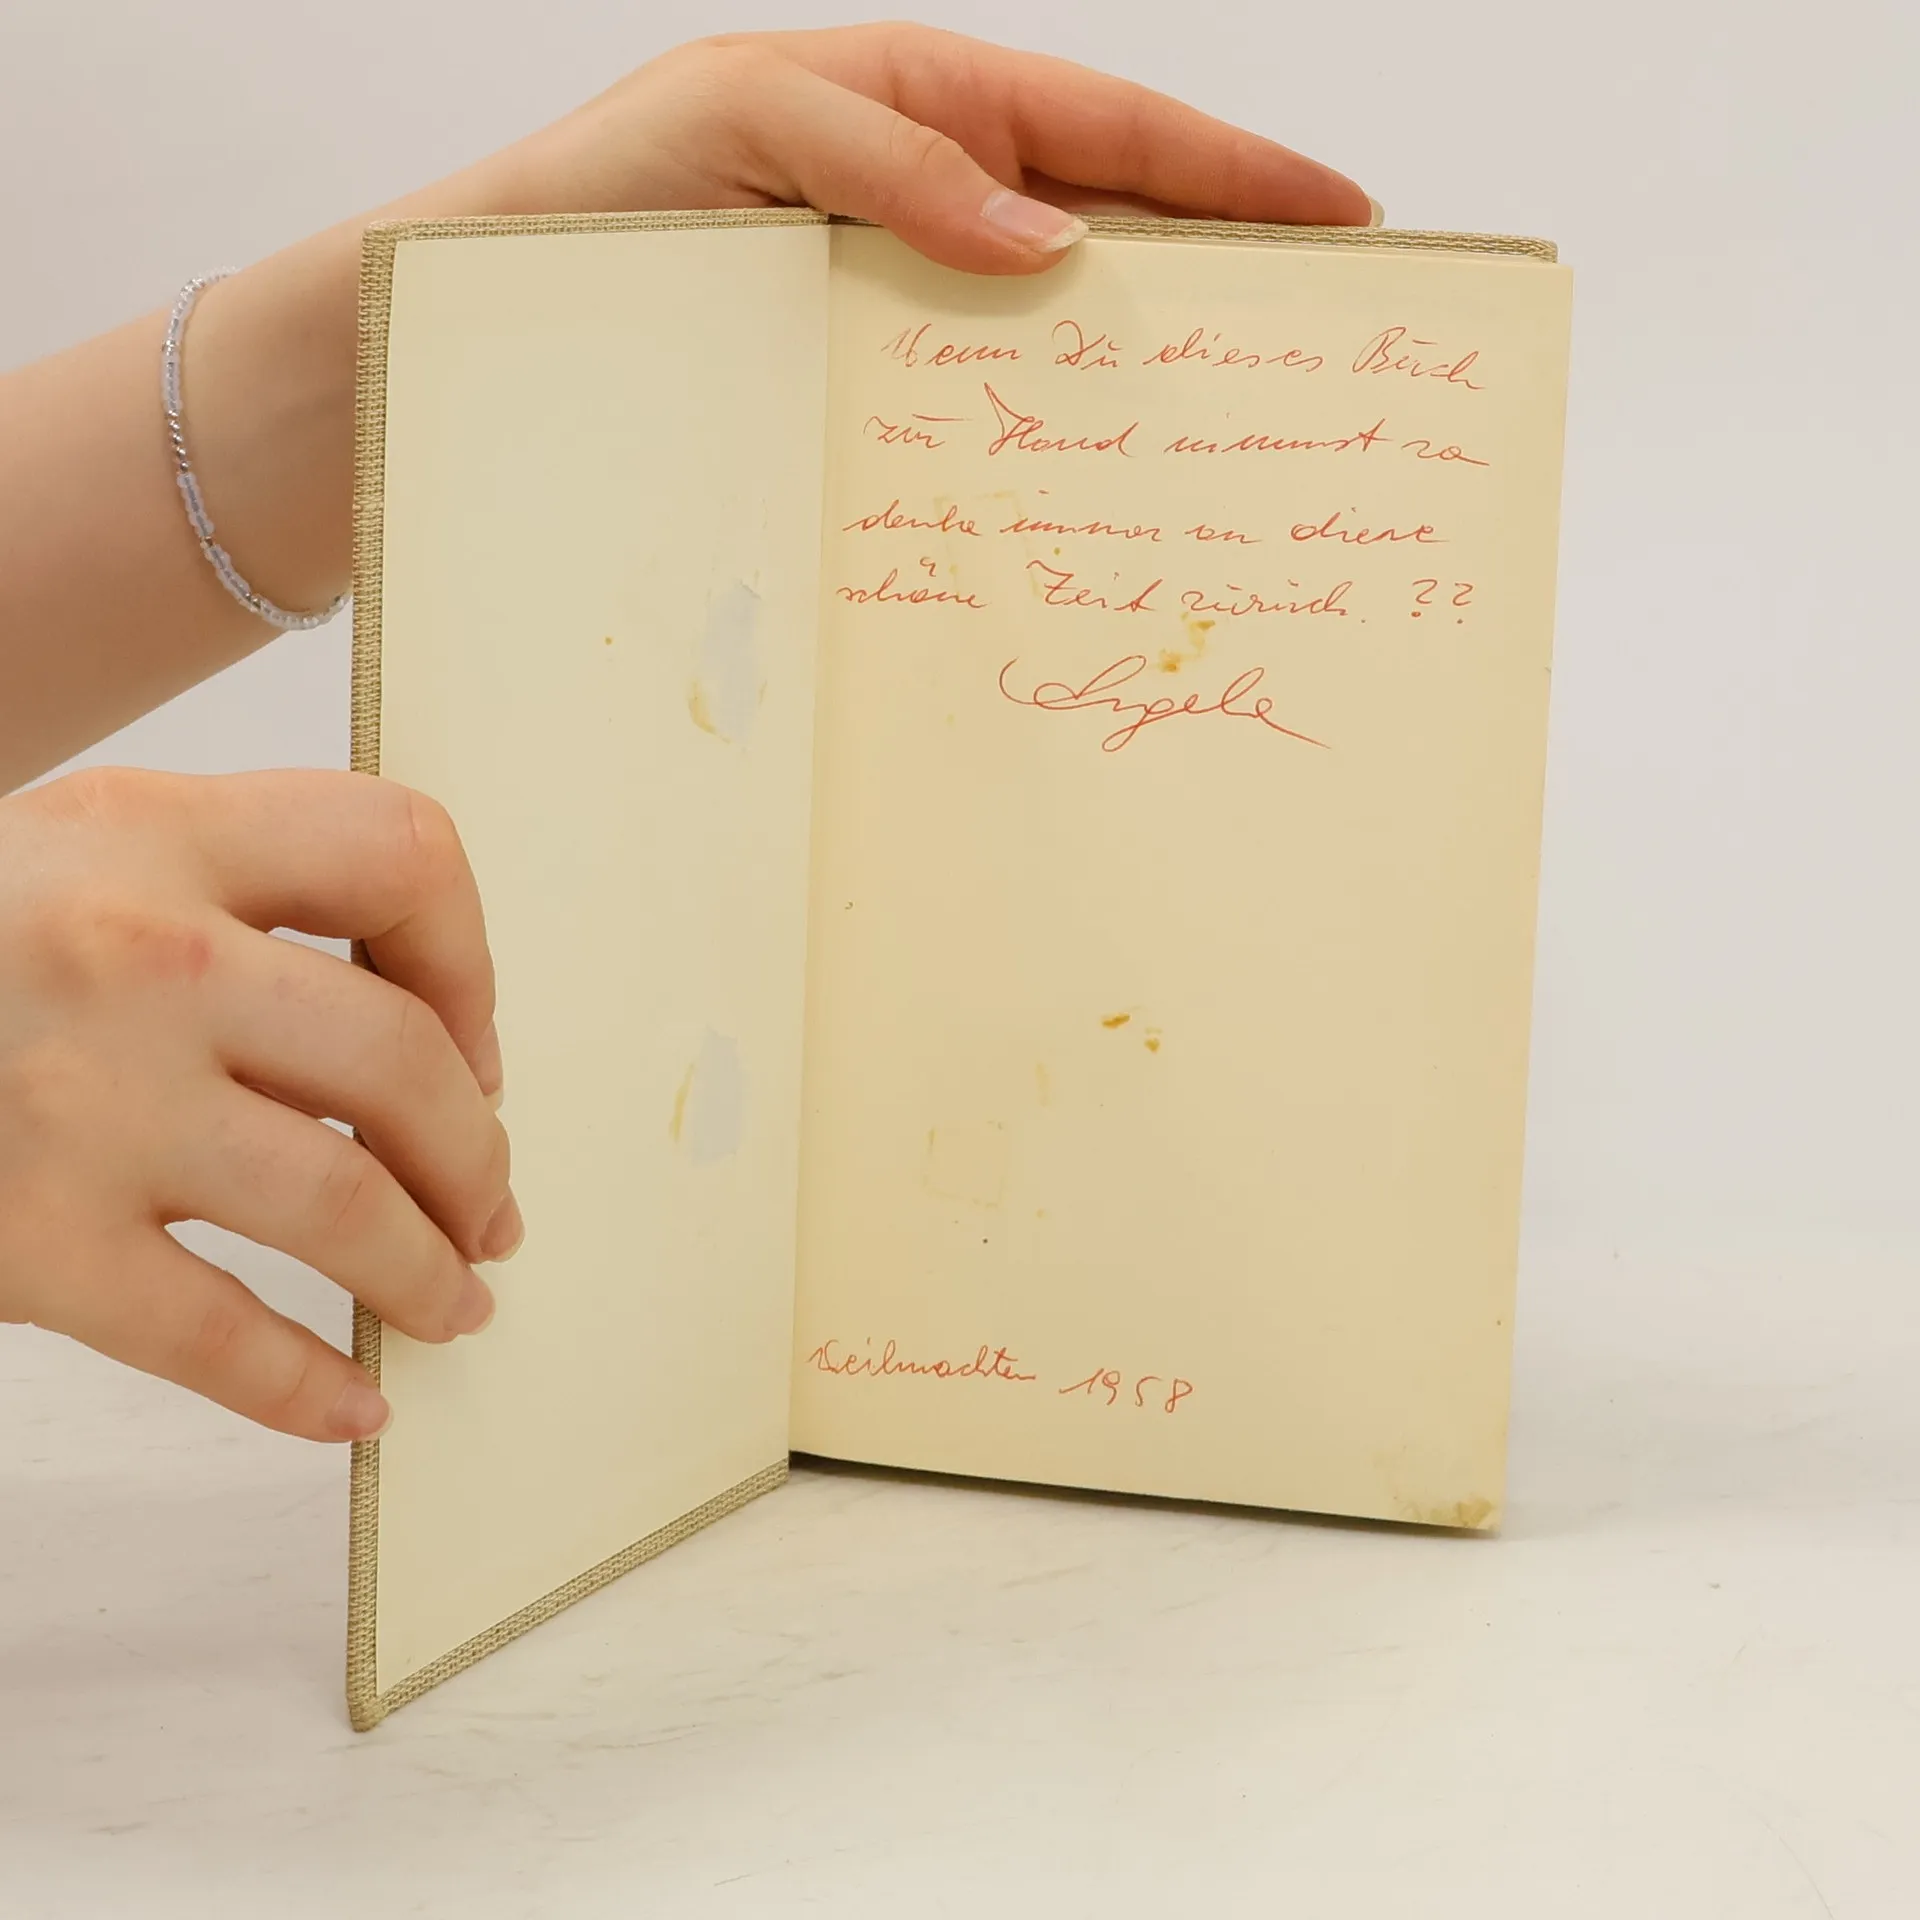 Wenn Du dieses Buch
zur Hand nimmst so
denke immer an diese
schöne Zeit zurück. ??
Angela
Weihnachten 1958